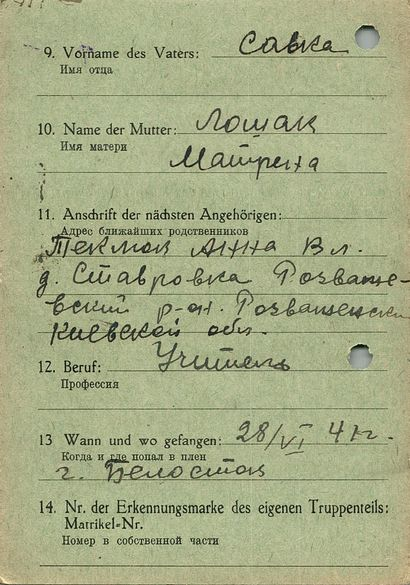 9. Vorname des Vaters: Савка
Имя отца
10. Name der Mutter: Лошак
Имя матери
Матрена
11. Anschrift der nächsten Angehörigen:
Адрес ближайших родственников
Анна Вл.
д. Ставровка Розваже-
вский р-он. Розваженский
Киевской обл.
12. Beruf: Учитель
Профессия
13 Wann und wo gefangen: 28/VI 41 г.
Когда и где попал в плен
г. Белосток
14. Nr. der Erkennungsmarke des eigenen Truppenteils:
Matrikel-Nr.
Номер в собственной части